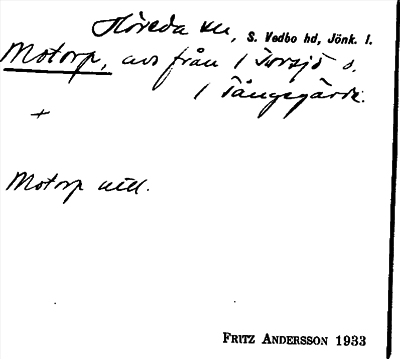 Höreda sn, S. Vedbo hd, Jönk. l.
Motorp, avs från 1 Torsjö o.
1 Tångsgärde.
+
Motorp utt.
FRITZ ANDERSSON 1933